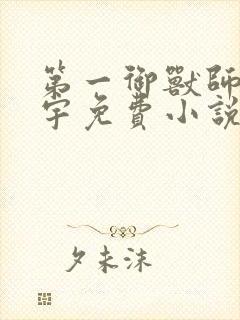 第一御獸師
宇免費小說
夕末沫